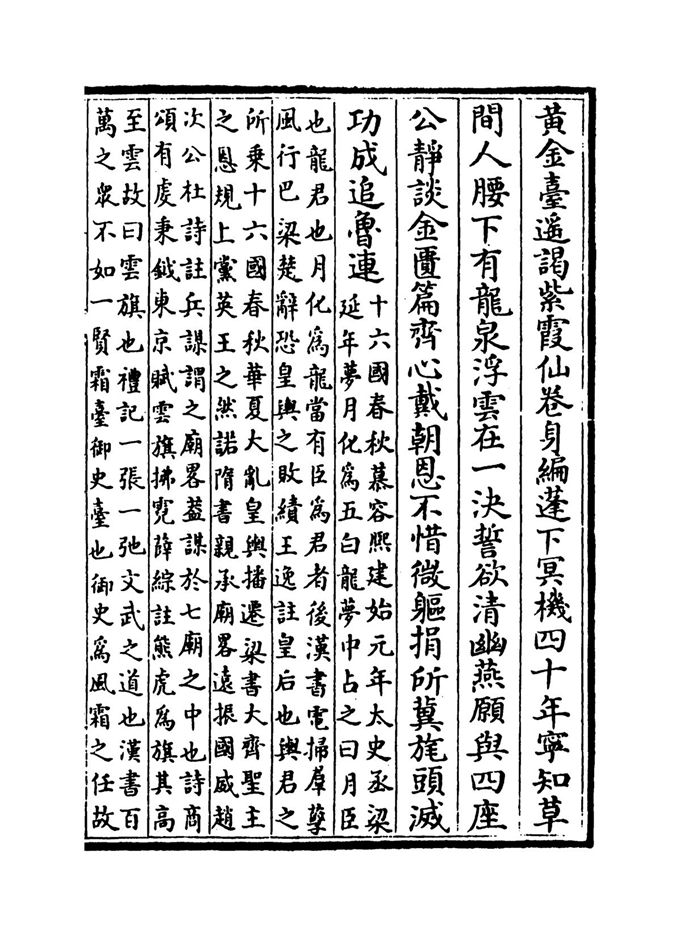 黃金臺遥謁紫霞仙卷身編蓬下冥機四十年寧知草
間人腰下有龍泉浮雲在一決誓欲清幽燕願與四座
公靜談金匱篇齊心戴朝恩不惜微軀捐所冀旄頭滅
功成追魯連
十六國春秋慕容熙建始元年太史丞梁
延年夢月化爲五白龍夢中占之曰月臣
也龍君也月化爲龍當有臣爲君者後漢書電掃羣孽
風行巴梁楚辭恐皇輿之敗績王逸註皇后也輿君之
所乗十六國春秋華夏大亂皇輿播遷梁書大齊聖主
之恩規上黨英王之然諾隋書親承廟畧遠振國威趙
次公杜詩註兵謀謂之廟畧葢謀於七廟之中也詩商
頌有虔秉鉞東京賦雲旗拂霓薛綜註熊虎爲旗其高
至雲故曰雲旗也禮記一張一弛文武之道也漢書百
萬之衆不如一賢霜臺御史臺也御史爲風霜之任故